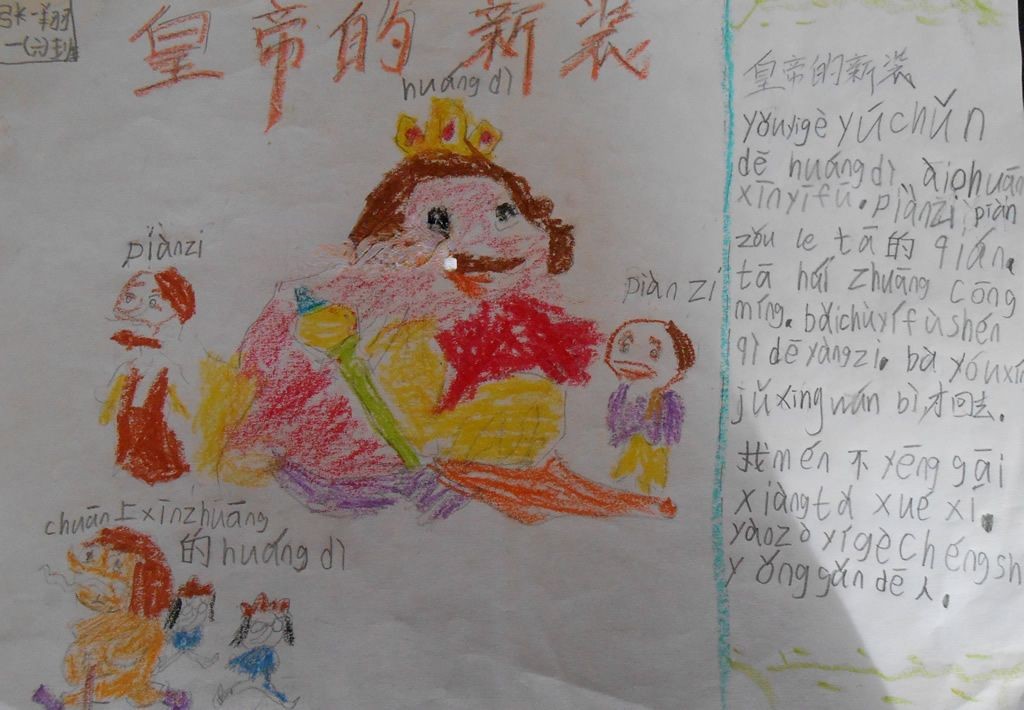 张一翔
一(六)班
皇帝的新装
huángdì
piànzi
piànzi
chuān上xīnzhuāng
的huángdì
皇帝的新装
yǒuyígèyúchǔn
dē huángdì, àiohuān
xīnyīfú。piànzi piàn
zǒu le tā的qián,
tā hái zhuāng cōng
míng。bǎichūyífùshén
qì dēyàngzi。bà yóuxín
jǔxíngwán bì,才回去。
我mén不yēnggāi
xiàngtā xué xí。
yàozòyígèchéngshí
yǒnggǎndē人。